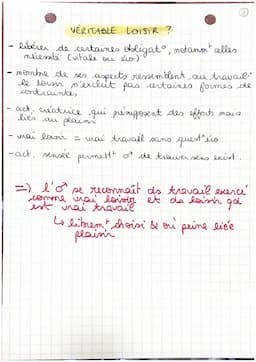 VERITABLE LOISIR ?
- libérer de certaines obligat°, notamt elles
nécessité (vitale ou éco)
- nombre de ses aspects ressemblent au travail:
le loisir n'exclut pas certaines formes de
contraintes
- act. créatrice qui présupposent des efforts mais
liés au plaisir
- vrai loisir = vrai travail sans quest° éco
- act. sensée permett σ' de trouver sens exist.
=) l'σ' se reconnaît ds travail exercé
comme vrai loisir et ds loisir qd
est vrai travail
↳ librem^t choisi & où peine liée
plaisir